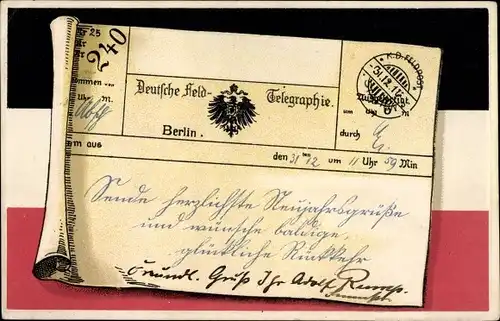 Nr 25
240
K.D. FELDPOST
31.12.
Deutsche Feld- Telegraphie.
Berlin.
durch
um aus
den 31 ten 12 um 11 Uhr 59 Min
Sende herzlichste Neujahrsgrüße
und wünsche baldige,
glückliche Rückkehr
Freundl. Gruß Ihr Adolf Rump.